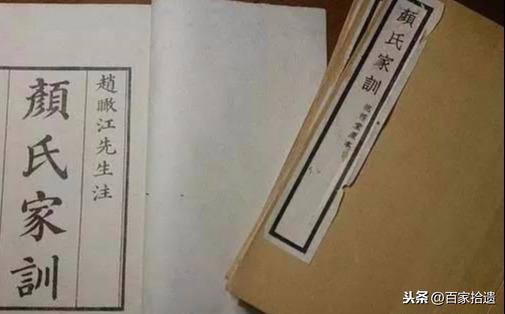 趙瞰江先生注
顏氏家訓
顏氏家訓
头条 @百家拾遗